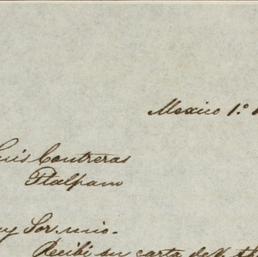 Mexico 1.º
Luis Contreras
Ptalpam
uy Sor. mio.
Recibí su carta de